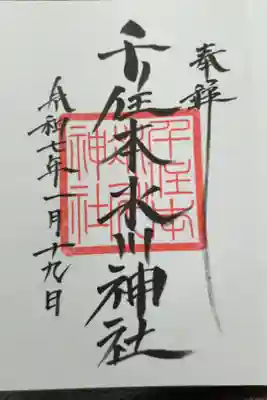 奉拝
千住本氷川神社
千住本氷川神社
令和七年一月十九日